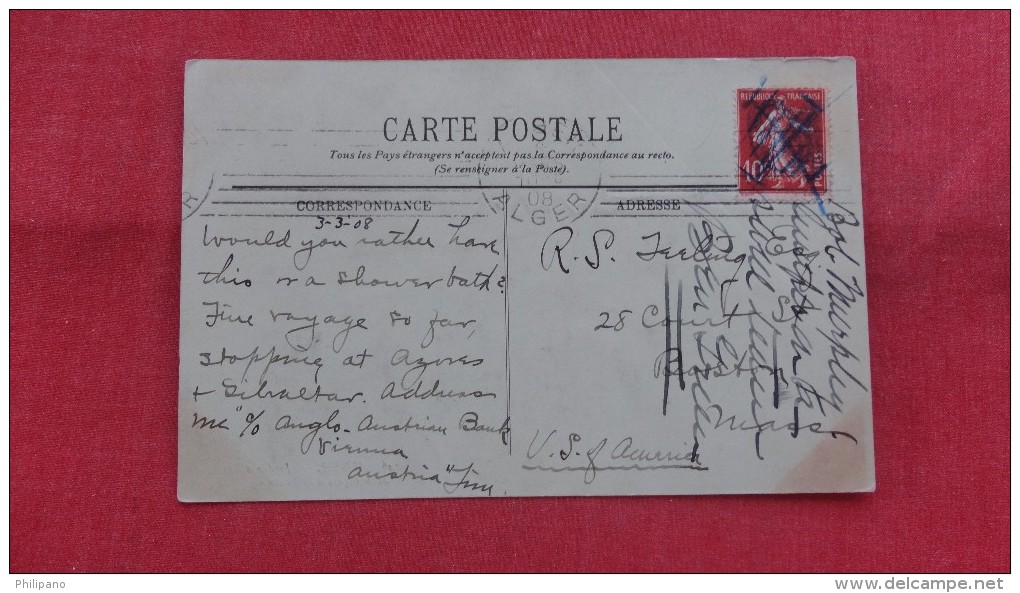 CARTE POSTALE
Tous les Pays étrangers n'acceptent pas la Correspondance au recto.
(Se renseigner à la Poste).
REPUBLIQUE FRANÇAISE
10
POSTES
08
ALGER
R
CORRESPONDANCE
ADRESSE
3-3-08
Would you rather have
this or a shower bath?
Fine voyage so far,
stopping at Azores
& Gibraltar. Address
me "c/o Anglo-Austrian Bank
Vienna
Austria" Jim.
R. S. Feeling
28 Court St
Boston
Mass
U. S. of America
Bob Murphy
Philipano
www.delcampe.net